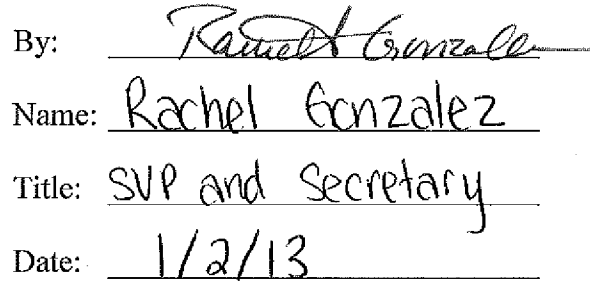 By: Rachel Gonzalez
Name: Rachel Gonzalez
Title: SVP and Secretary
Date: 1/2/13